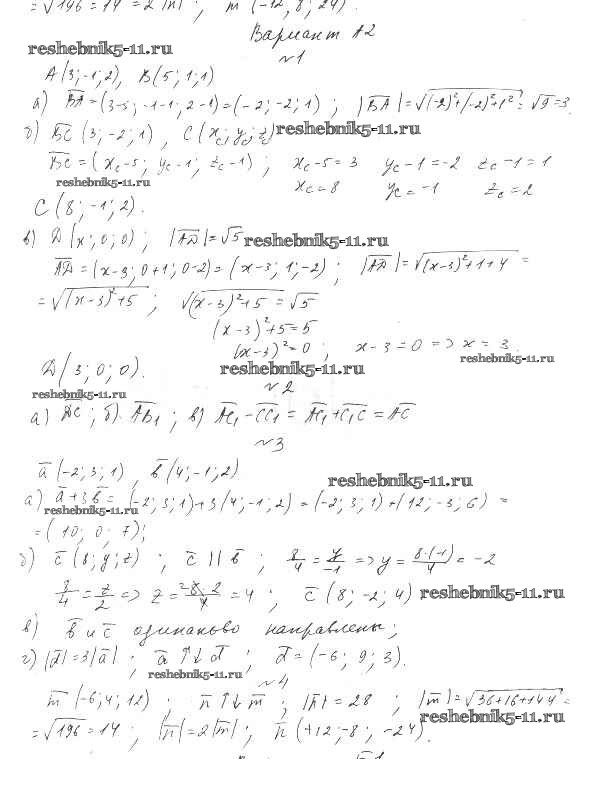 = √196 = 14 = 2|n̄| ; m̄ (-12, 8; 24).
Вариант А2
reshebnik5-11.ru
№1
A(3;-1;2), B(5;1;1)
а) B̄Ā = (3-5; -1-1; 2-1) = (-2; -2; 1) ; |B̄Ā| = √((-2)²+(-2)²+1²) = √9 = 3.
б) B̄C̄ (3; -2; 1) , C(x_c; y_c; z_c) reshebnik5-11.ru
B̄C̄ = (x_c-5; y_c-1; z_c-1) ; x_c-5=3 y_c-1=-2 z_c-1=1
reshebnik5-11.ru x_c=8 y_c=-1 z_c=2
C(8;-1;2).
в) D(x;0;0) ; |ĀD̄|=√5 reshebnik5-11.ru
ĀD̄ = (x-3; 0+1; 0-2) = (x-3; 1; -2) ; |ĀD̄| = √((x-3)²+1+4) =
= √((x-3)²+5) ; √((x-3)²+5) = √5
(x-3)²+5=5
(x-3)²=0 ; x-3=0 => x=3.
reshebnik5-11.ru
D(3;0;0). reshebnik5-11.ru
reshebnik5-11.ru №2
а) D̄C̄ ; б) ĀB̄₁ ; в) ĀC̄₁ - C̄C̄₁ = ĀC̄₁ + C̄₁C̄ = ĀC̄
№3
ā(-2;3;1) , b̄(4;-1;2)
reshebnik5-11.ru
а) ā+3b̄ = (-2;3;1)+3(4;-1;2) = (-2;3;1)+(12;-3;6) =
reshebnik5-11.ru
=(10; 0; 7);
б) c̄(8;y;z) ; c̄ || b̄ ; 8/4 = y/-1 => y = 8·(-1)/4 = -2
8/4 = z/2 => z = 8·2/4 = 4 ; c̄(8;-2;4) reshebnik5-11.ru
в) b̄ и c̄ одинаково направлены;
г) |d̄|=3|ā| ; ā ↑↓ d̄ ; d̄=(-6; 9; 3).
reshebnik5-11.ru
№4
m̄(-6;4;12) ; n̄ ↑↓ m̄ ; |n̄| = 28 ; |m̄| = √(36+16+144) =
reshebnik5-11.ru
= √196 = 14 ; |n̄| = 2|m̄| ; n̄(+12;-8; -24).